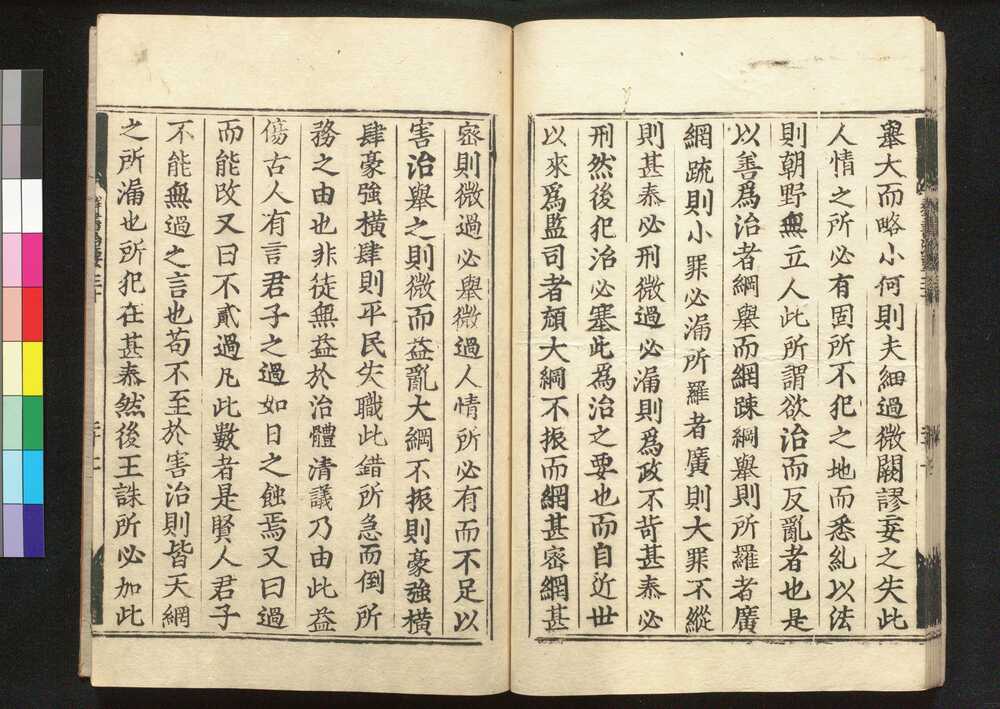 舉大而略小何則夫細過微闕謬妄之失此
人情之所必有固所不犯之地而悉糺以法
則朝野無立人此所謂欲治而反亂者也是
以善為治者綱舉而網踈綱舉則所羅者廣
網疏則小罪必漏所羅者廣則大罪不縱
則甚泰必刑微過必漏則為政不苛甚泰必
刑然後犯治必塞此為治之要也而自近世
以來為監司者頹大綱不振而網甚密網甚
密則微過必舉微過人情所必有而不足以
害治舉之則微而益亂大綱不振則豪強橫
肆豪強橫肆則平民失職此錯所急而倒所
務之由也非徒無益於治體清議乃由此益
傷古人有言君子之過如日之蝕焉又曰過
而能改又曰不貳過凡此數者是賢人君子
不能無過之言也苟不至於害治則皆天網
之所漏也所犯在甚泰然後王誅所必加此